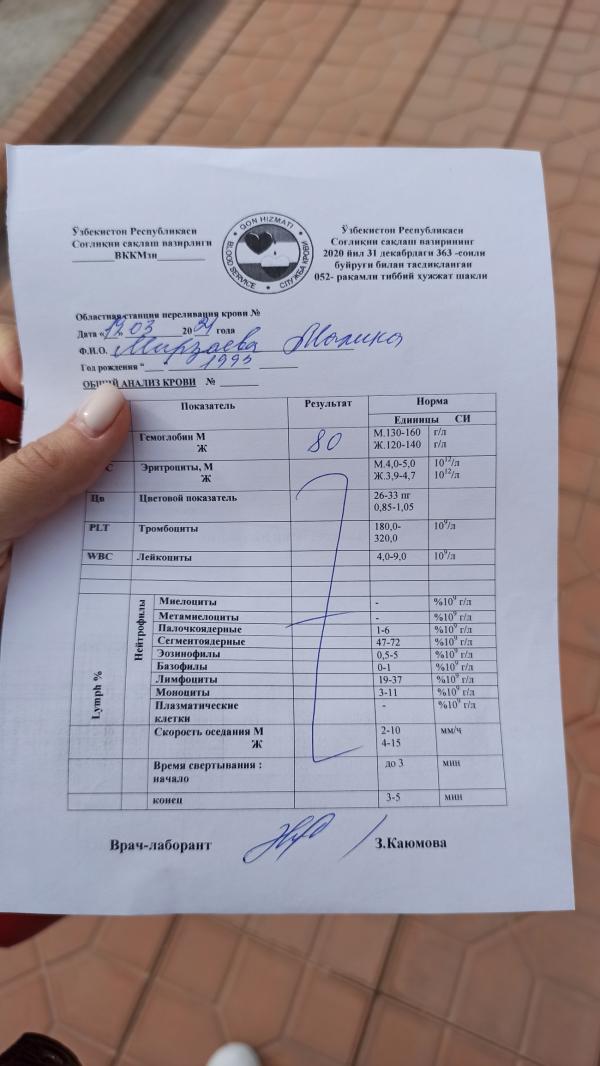 Ўзбекистон Республикаси
Соғлиқни сақлаш вазирлиги
ВККМзн
QON HIZMATI
BLOOD SERVICE
СЛУЖБА КРОВИ
Ўзбекистон Республикаси
Соғлиқни сақлаш вазирининг
2020 йил 31 декабрдаги 363 -сонли
буйруғи билан тасдиқланган
052- рақамли тиббий ҳужжат шакли
Областная станция переливания крови №
Дата « 03 20 года
Ф.И.О. Мирзаева Малика
Год рождения " 1993
ОБЩИЙ АНАЛИЗ КРОВИ №
Показатель Результат Норма
Единицы СИ
Гемоглобин М 80 М.130-160 г/л
Ж Ж.120-140 г/л
Эритроциты, М М.4,0-5,0 10¹²/л
Ж Ж.3,9-4,7 10¹²/л
Цв Цветовой показатель 26-33 пг
0,85-1,05
PLT Тромбоциты 180,0- 10⁹/л
320,0
WBC Лейкоциты 4,0-9,0 10⁹/л
Lymph %
Нейтрофилы
Миелоциты - %10⁹ г/л
Метамиелоциты - %10⁹ г/л
Палочкоядерные 1-6 %10⁹ г/л
Сегментоядерные 47-72 %10⁹ г/л
Эозинофилы 0,5-5 %10⁹ г/л
Базофилы 0-1 %10⁹ г/л
Лимфоциты 19-37 %10⁹ г/л
Моноциты 3-11 %10⁹ г/л
Плазматические - %10⁹ г/л
клетки
Скорость оседания М 2-10 мм/ч
Ж 4-15
Время свертывания : до 3 мин
начало
конец 3-5 мин
Врач-лаборант З.Каюмова